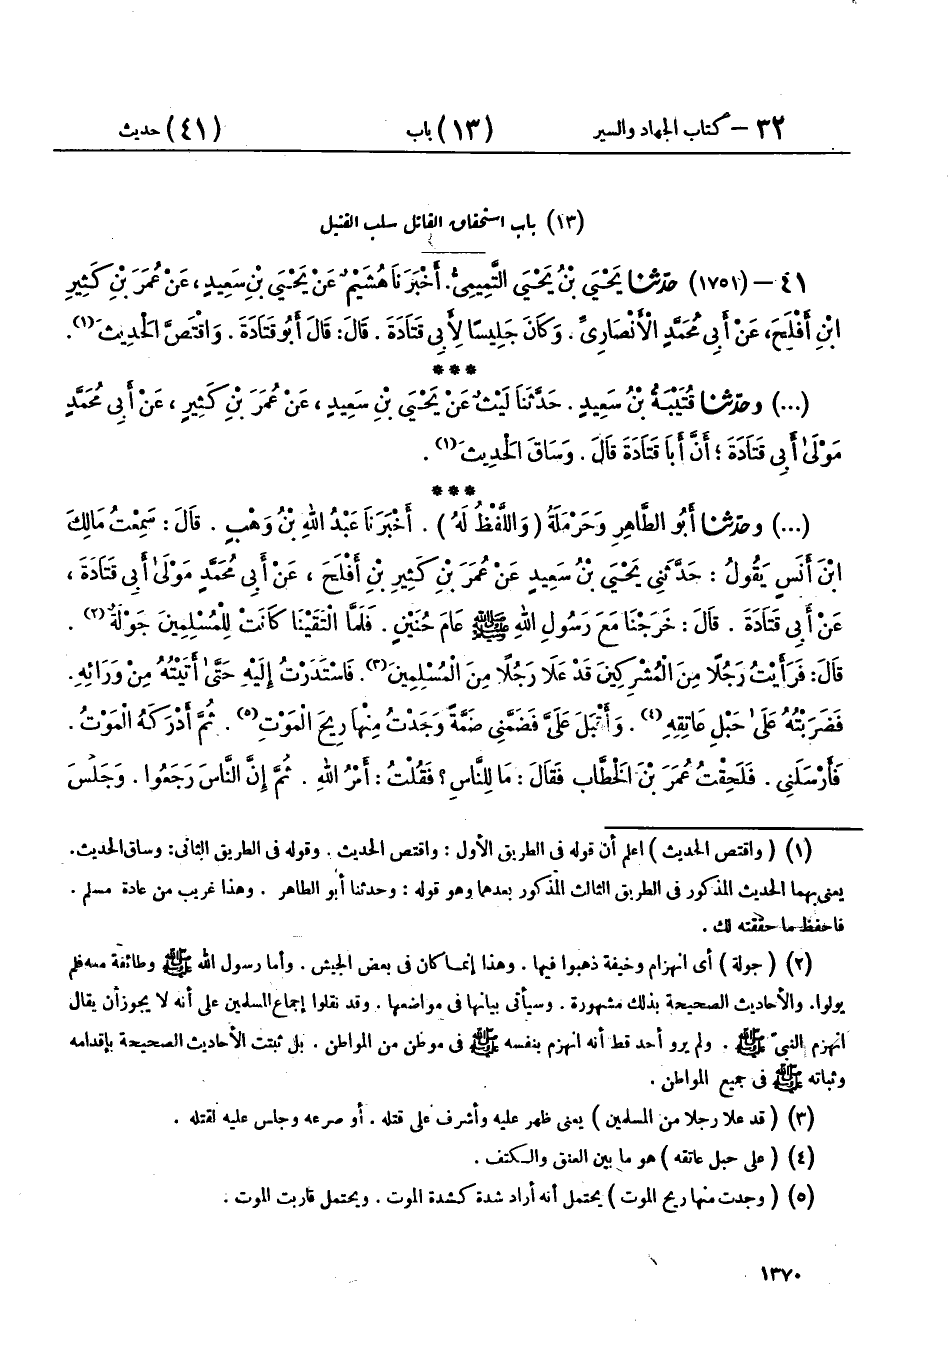 ٣٢ – كتاب الجهاد والسير (١٣) باب (٤١) حديث
(١٣) باب استحقاق القاتل سلب القتيل
٤١ – (١٧٥١) حدثنا يَحْيَىٰ بْنُ يَحْيَى التَّمِيمِىُّ. أَخْبَرَنَا هُشَيْمٌ عَنْ يَحْيَىٰ بْنِ سَعِيدٍ، عَنْ عُمَرَ بْنِ كَثِيرِ
ابْنِ أَفْلَحَ، عَنْ أَبِى مُحَمَّدٍ الْأَنْصَارِىِّ. وَكَانَ جَلِيسًا لِأَبِى قَتَادَةَ. قَالَ: قَالَ أَبُو قَتَادَةَ. وَاقْتَصَّ الْحَدِيثَ(١).
***
(...) وحدثنا قُتَيْبَةُ بْنُ سَعِيدٍ. حَدَّثَنَا لَيْثٌ عَنْ يَحْيَىٰ بْنِ سَعِيدٍ، عَنْ عُمَرَ بْنِ كَثِيرٍ، عَنْ أَبِى مُحَمَّدٍ
مَوْلَىٰ أَبِى قَتَادَةَ؛ أَنَّ أَبَا قَتَادَةَ قَالَ. وَسَاقَ الْحَدِيثَ(١).
***
(...) وحدثنا أَبُو الطَّاهِرِ وَحَرْمَلَةُ (وَاللَّفْظُ لَهُ). أَخْبَرَنَا عَبْدُ اللهِ بْنُ وَهْبٍ. قَالَ: سَمِعْتُ مَالِكَ
ابْنَ أَنَسٍ يَقُولُ: حَدَّثَنِى يَحْيَىٰ بْنُ سَعِيدٍ عَنْ عُمَرَ بْنِ كَثِيرِ بْنِ أَفْلَحَ، عَنْ أَبِى مُحَمَّدٍ مَوْلَىٰ أَبِى قَتَادَةَ،
عَنْ أَبِى قَتَادَةَ. قَالَ: خَرَجْنَا مَعَ رَسُولِ اللهِ ﷺ عَامَ حُنَيْنٍ. فَلَمَّا الْتَقَيْنَا كَانَتْ لِلْمُسْلِمِينَ جَوْلَةٌ(٢).
قَالَ: فَرَأَيْتُ رَجُلًا مِنَ الْمُشْرِكِينَ قَدْ عَلَا رَجُلًا مِنَ الْمُسْلِمِينَ(٣). فَاسْتَدَرْتُ إِلَيْهِ حَتَّىٰ أَتَيْتُهُ مِنْ وَرَائِهِ.
فَضَرَبْتُهُ عَلَىٰ حَبْلِ عَاتِقِهِ(٤). وَأَقْبَلَ عَلَىَّ فَضَمَّنِى ضَمَّةً وَجَدْتُ مِنْهَا رِيحَ الْمَوْتِ(٥). ثُمَّ أَدْرَكَهُ الْمَوْتُ.
فَأَرْسَلَنِى. فَلَحِقْتُ عُمَرَ بْنَ الْخَطَّابِ فَقَالَ: مَا لِلنَّاسِ؟ فَقُلْتُ: أَمْرُ اللهِ. ثُمَّ إِنَّ النَّاسَ رَجَعُوا. وَجَلَسَ
(١) (واقتص الحديث) اعلم أن قوله فى الطريق الأول: واقتص الحديث. وقوله فى الطريق الثانى: وساق الحديث.
يعنى بهما الحديث المذكور فى الطريق الثالث المذكور بعدها وهو قوله: وحدثنا أبو الطاهر. وهذا غريب من عادة مسلم.
فاحفظ ما حققته لك.
(٢) (جولة) أى انهزام وخيفة ذهبوا فيها. وهذا إنما كان فى بعض الجيش. وأما رسول الله ﷺ وطائفة معه فلم
يولوا. والأحاديث الصحيحة بذلك مشهورة. وسيأتى بيانها فى مواضعها. وقد نقلوا إجماع المسلمين على أنه لا يجوز أن يقال
انهزم النبىّ ﷺ. ولم يرو أحد قط أنه انهزم بنفسه ﷺ فى موطن من المواطن. بل ثبتت الأحاديث الصحيحة بإقدامه
وثباته ﷺ فى جميع المواطن.
(٣) (قد علا رجلا من المسلمين) يعنى ظهر عليه وأشرف على قتله. أو صرعه وجلس عليه لقتله.
(٤) (على حبل عاتقه) هو ما بين العنق والكتف.
(٥) (وجدت منها ريح الموت) يحتمل أنه أراد شدة كشدة الموت. ويحتمل قاربت الموت.
١٣٧٠